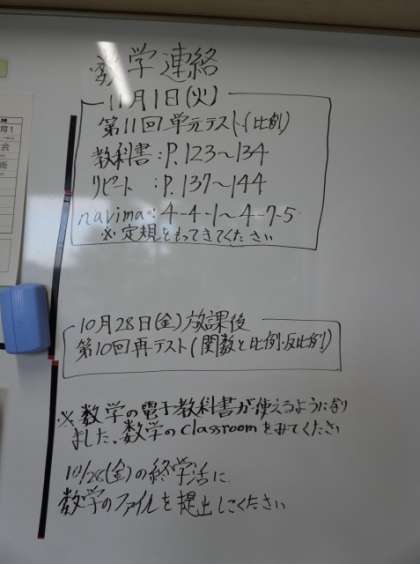 数学連絡
11月1日(火)
第11回単元テスト(比例)
教科書:P.123〜134
リピート:P.137〜144
navima:4-4-1〜4-7-5
※定規をもってきてください
10月28日(金)放課後
第10回再テスト(関数と比例・反比例)
※数学の電子教科書が使えるようになり
ました。数学のclassroomをみてください
10/28(金)の終学活に
数学のファイルを提出してください